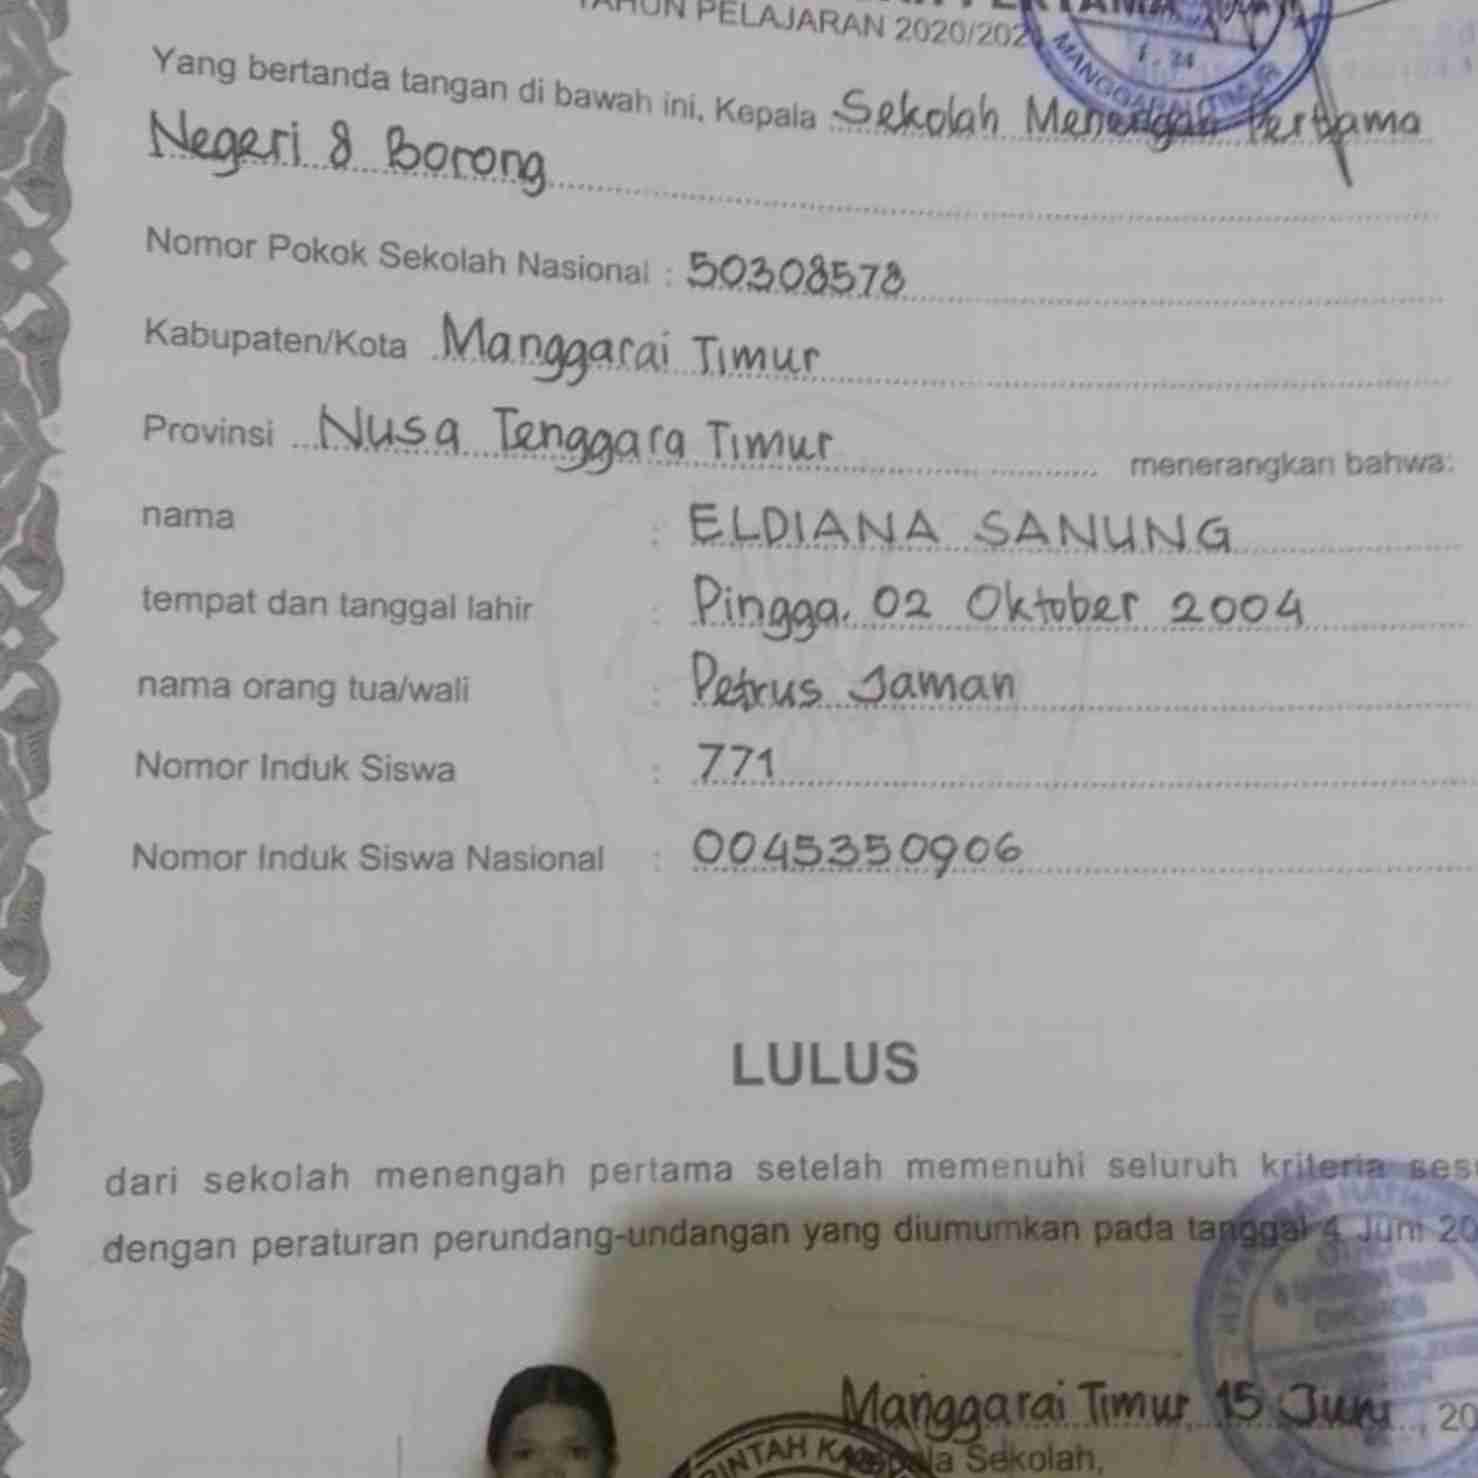 TAHUN PELAJARAN 2020/202
MANGGARAI TIMUR
Yang bertanda tangan di bawah ini, Kepala Sekolah Menengah Pertama
Negeri 8 Borong
Nomor Pokok Sekolah Nasional : 50308578
Kabupaten/Kota Manggarai Timur
Provinsi Nusa Tenggara Timur menerangkan bahwa:
nama : ELDIANA SANUNG
tempat dan tanggal lahir : Pingga, 02 Oktober 2004
nama orang tua/wali : Petrus Jaman
Nomor Induk Siswa : 771
Nomor Induk Siswa Nasional : 0045350906
LULUS
dari sekolah menengah pertama setelah memenuhi seluruh kriteria ses
dengan peraturan perundang-undangan yang diumumkan pada tanggal 4 Juni 20
Manggarai Timur, 15 Juni, 20
Kepala Sekolah,